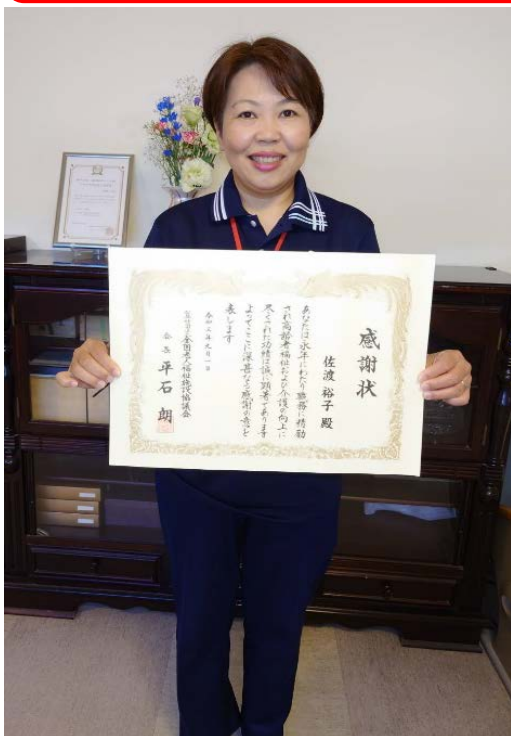 感謝状
佐渡 裕子 殿
あなたは永年にわたり職務に精励
され高齢者福祉および介護の向上に
尽くされた功績は誠に顕著であります
よってここに深甚なる感謝の意を
表します
令和三年九月一日
全国老人福祉施設協議会
会長 平石 朗